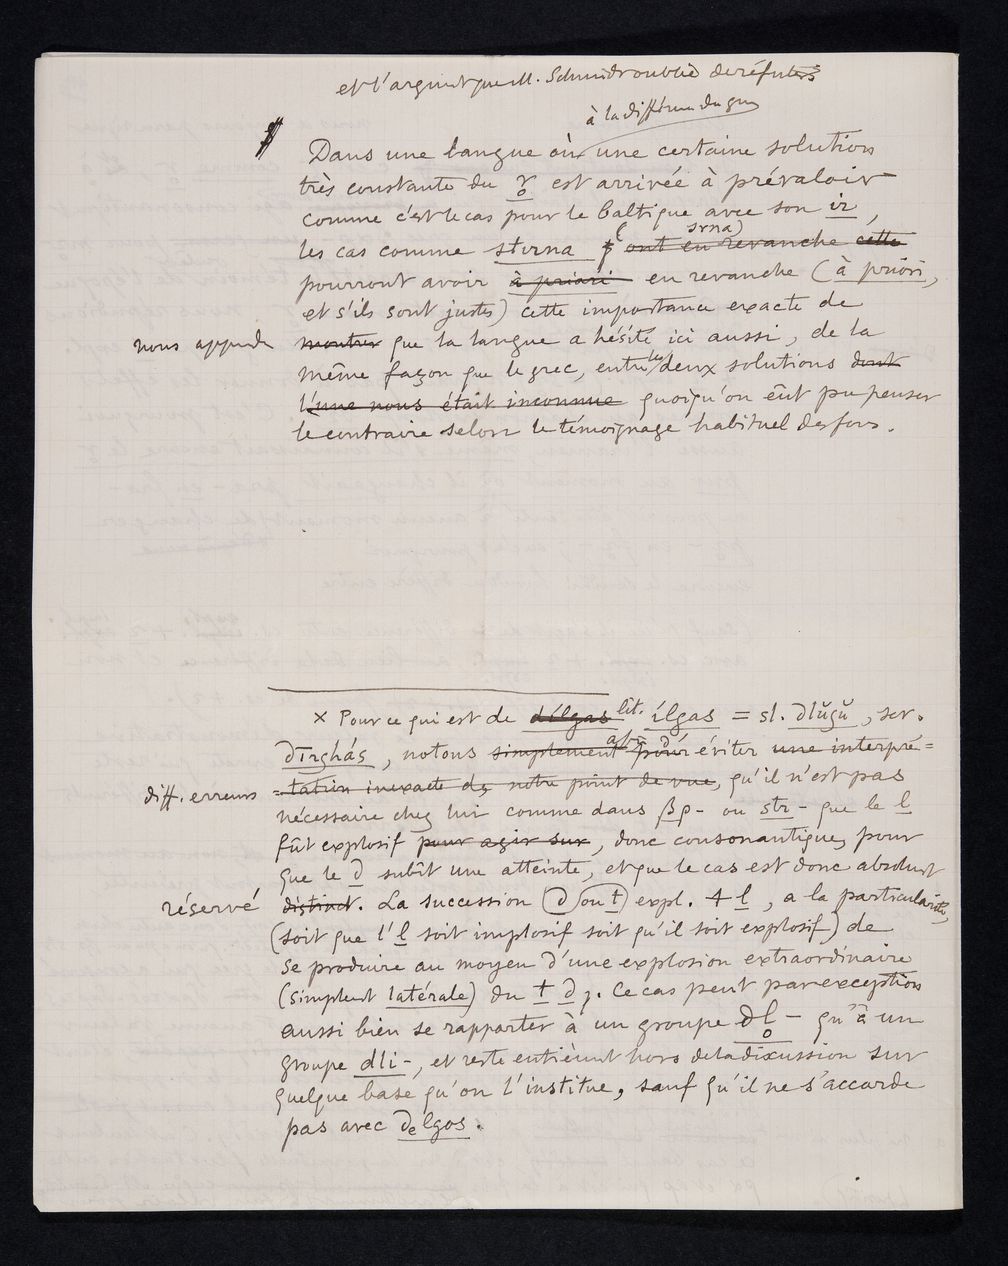 et l'argument que M. Schmidt oublie de réfuter
à la différence du grec
Dans une langue où une certaine solution
très constante du r̥ est arrivée à prévaloir
comme c'est le cas pour le baltique avec son ir,
les cas comme stirna (srna) ont en revanche cette
pourront avoir à priori en revanche (à priori,
et s'ils sont justes) cette importance exacte de
nous apprendre montrer que la langue a hésité ici aussi, de la
même façon que le grec, entre les deux solutions dont
l'une nous était inconnue quoiqu'on eût pu penser
le contraire selon le témoignage habituel des
× Pour ce qui est de dílgas lit. ílgas = sl. dlŭgŭ, scr.
dīrghás, notons simplement pour afin d'éviter une interpré=
diff. erreurs =tation inexacte de notre point de vue, qu'il n'est pas
nécessaire chez lui comme dans βρ- ou str- que le l
fût explosif pour agir sur, donc consonantique, pour
que le d subît une atteinte, et que le cas est donc absolument
réservé distinct. La succession (d ou t) expl. + l, a la particularité,
(soit que l'l soit implosif soit qu'il soit explosif) de
se produire au moyen d'une explosion extraordinaire
(simplement latérale) du t d,. Ce cas peut par exception
aussi bien se rapporter à un groupe dl̥- qu'à un
groupe dli-, et reste entièrement hors de la discussion sur
quelque base qu'on l'institue, sauf qu'il ne s'accorde
pas avec dₑlgos.